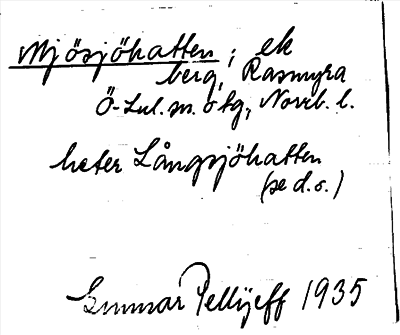 Mjösjöhatten; ek
berg, Rasmyra
Ö-Lul. sn. o tg, Norrb. l.
heter Långsjöhatten
(se d. o.)
Gunnar Pellijeff 1935